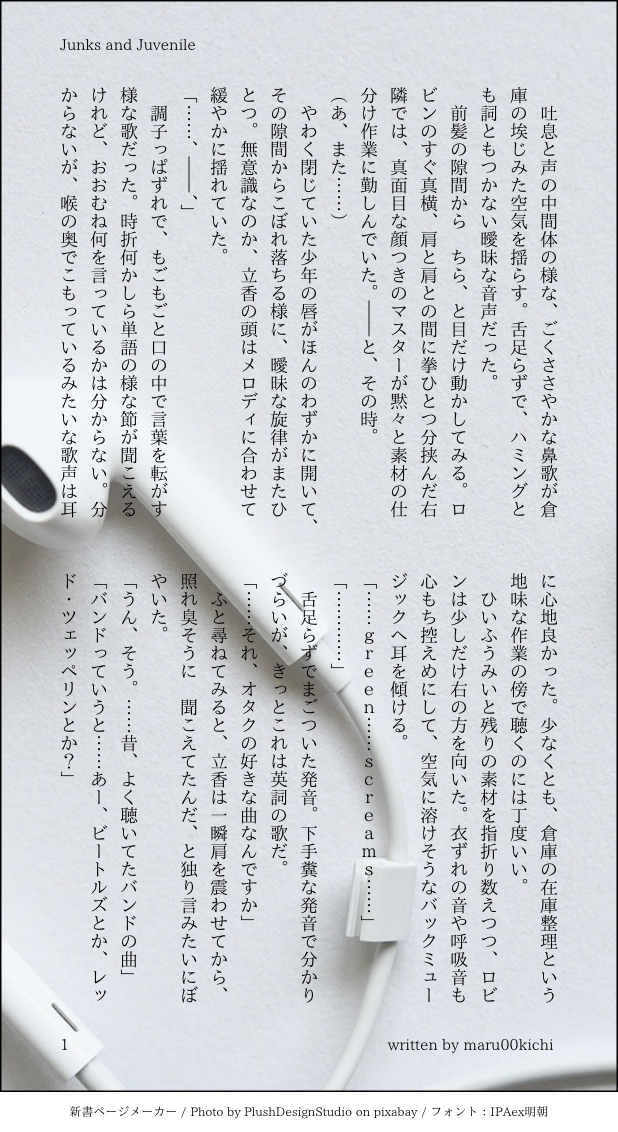 Junks and Juvenile
　吐息と声の中間体の様な、ごくささやかな鼻歌が倉
庫の埃じみた空気を揺らす。舌足らずで、ハミングと
も詞ともつかない曖昧な音声だった。
　前髪の隙間から　ちら、と目だけ動かしてみる。ロ
ビンのすぐ真横、肩と肩との間に拳ひとつ分挟んだ右
隣では、真面目な顔つきのマスターが黙々と素材の仕
分け作業に勤しんでいた。――と、その時。
（あ、また……）
　やわく閉じていた少年の唇がほんのわずかに開いて、
その隙間からこぼれ落ちる様に、曖昧な旋律がまたひ
とつ。無意識なのか、立香の頭はメロディに合わせて
緩やかに揺れていた。
「……、――、」
　調子っぱずれで、もごもごと口の中で言葉を転がす
様な歌だった。時折何かしら単語の様な節が聞こえる
けれど、おおむね何を言っているかは分からない。分
からないが、喉の奥でこもっているみたいな歌声は耳
に心地良かった。少なくとも、倉庫の在庫整理という
地味な作業の傍で聴くのには丁度いい。
　ひいふうみいと残りの素材を指折り数えつつ、ロビ
ンは少しだけ右の方を向いた。衣ずれの音や呼吸音も
心もち控えめにして、空気に溶けそうなバックミュー
ジックへ耳を傾ける。
「……ｇｒｅｅｎ……ｓｃｒｅａｍｓ……」
「…………」
　舌足らずでまごついた発音。下手糞な発音で分かり
づらいが、きっとこれは英詞の歌だ。
「……それ、オタクの好きな曲なんですか」
　ふと尋ねてみると、立香は一瞬肩を震わせてから、
照れ臭そうに　聞こえてたんだ、と独り言みたいにぼ
やいた。
「うん、そう。……昔、よく聴いてたバンドの曲」
「バンドっていうと……あー、ビートルズとか、レッ
ド・ツェッペリンとか？」
1
written by maru00kichi
新書ページメーカー / Photo by PlushDesignStudio on pixabay / フォント：IPAex明朝